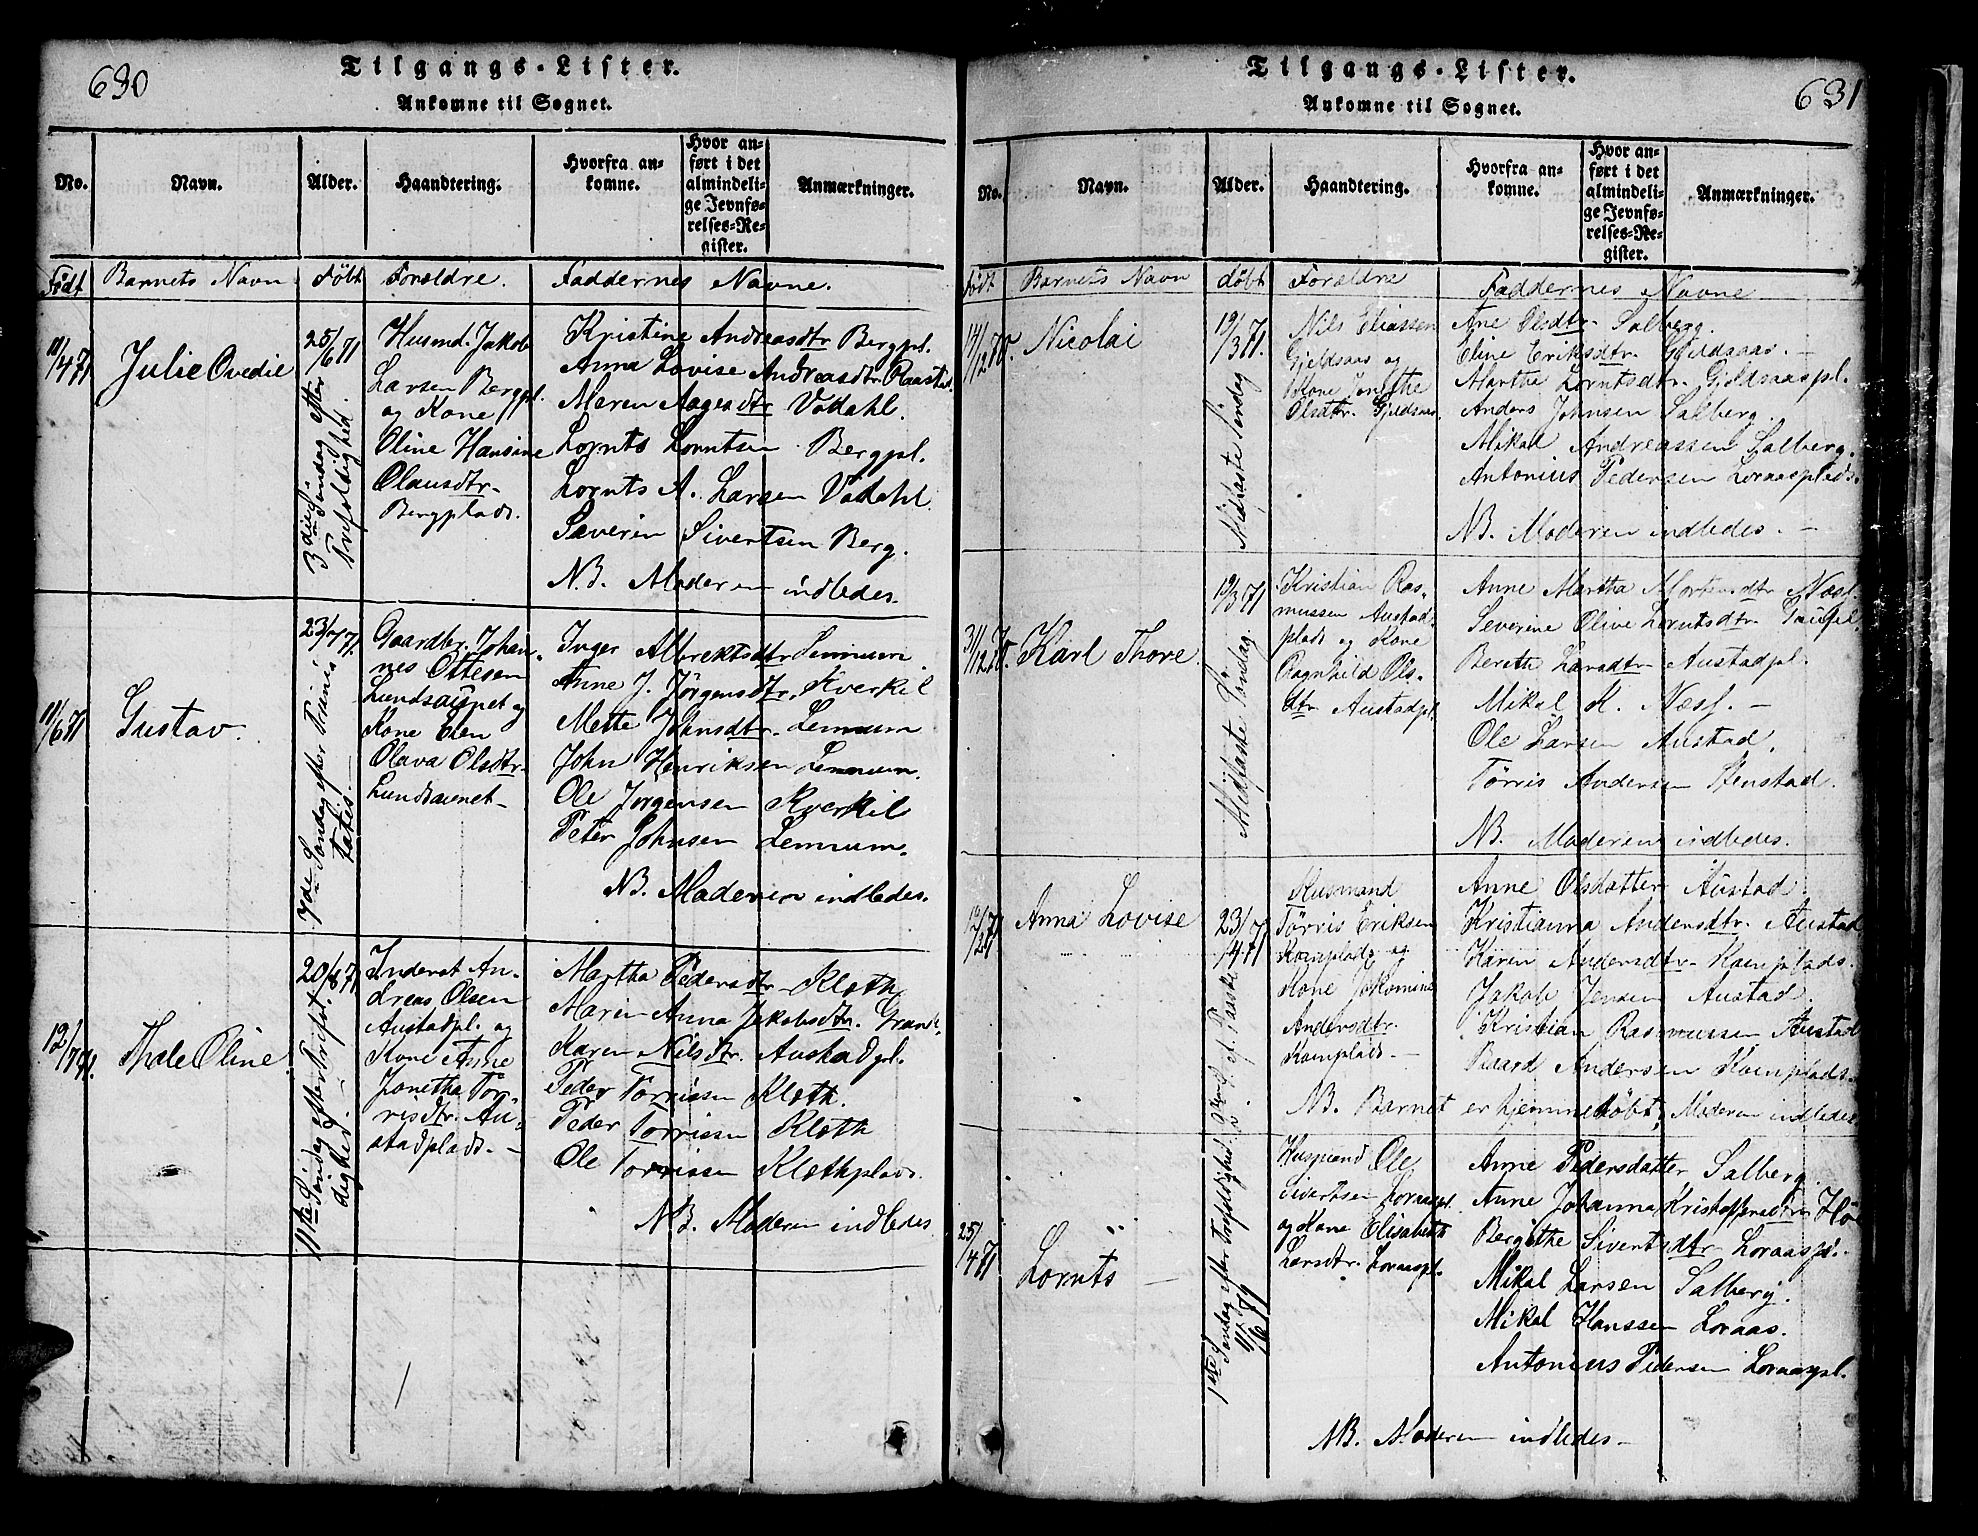 630
Tilgangs-Lister.
Ankomne til Sognet.
No.
Navn.
Alder.
Haandtering.
Hvorfra an-
komne.
Hvor an-
ført i det
almindeli-
ge Jevnfø-
relses-Re-
gister.
Anmærkninger.
Født
Barnets Navn
Døbt
Forældre.
Faddernes Navne.
11/4 71
Julie Ovedie
25/6 71
3die Søndag efter
Trefoldighed.
Husmd. Jakob
Larsen Bergpl.
og Kone
Oline Hansine
Olausdtr.
Bergplads.
Kristine Andreasdtr Bergpl.
Anna Lovise Andreasdtr. Raastad
Maren Aagesdtr Vådahl.
Lornts Lorntsen Bergpl.
Lornts A. Larsen Vådahl.
Severin Sivertsen Berg.
N.B. Moderen indledes.
11/6 71
Gustav.
23/7 71.
7de Søndag efter Trini-
tatis.
Gaardbr. Johan-
nes Ottesen
Lundsaunet og
Kone Elen
Olava Olsdtr.
Lundsaunet-
Inger Albrektsdtr Lemmum.
Anne J. Jørgensdtr. Kverkil
Mette Johnsdtr. Lemmum
John Henriksen Lemmum.
Ole Jørgensen Kverkil
Peter Johnsen Lemmum.
NB. Moderen indledes.
12/7 71.
Thale Oline
20/8 71
11te Søndag efter Trefol-
dighed.
Inderst An-
dreas Olsen
Austadpl. og
Kone Anne
Jonetha Tør-
risdtr. Au-
stadplads.
Martha Pedersdtr. Kleth
Maren Anna Jakobsdtr. Grand.
Karen Nilsdtr. Austadpl.
Peder Torrissen Kleth.
Peder Torrissen Kleth
Ole Torrissen Klethplads.
NB. Moderen indledes
631
Tilgangs-Lister.
Ankomne til Sognet.
No.
Navn.
Alder.
Haandtering.
Hvorfra an-
komne.
Hvor an-
ført i det
almindeli-
ge Jevnfø-
relses-Re-
gister.
Anmærkninger.
Født
Barnets Navn
døbt
Forældre
Faddernes Navne
14/12 70.
Nicolai
19/3 71.
Midfaste Søndag
Nils Eliassen
Gjeldsaas og
Kone Jonethe
Olsdtr. Gjeldsaas.
Ane Olsdtr. Salberg.
Eline Eriksdtr. Gjeldsaas.
Marthe Lorntsdtr. Gjeldsaaspl.
Anders Johnsen Salberg.
Mikal Andreassen Salberg.
Antonius Pedersen Loraasplads.
NB. Moderen indledes.
31/12 70.
Karl Thore.
19/3 71
Midfaste Søndag.
Kristian Ras-
mussen Austad-
plads og Kone
Ragnhild Ols-
dtr Austadpl.
Anne Martha Mortensdtr Næss
Severine Olive Lorntsdtr.
Berethe Larsdtr Austadpl.
Mikal K. Næss.
Ole Larsen Austad.
Tørris Andersen Stenstad.
NB. Moderen indledes.
Anna Lovise
23/4 71
Husmand
Tørris Eriksen
Komplads og
Kone Jakomine
Andersdtr.
Komplads.
Anne Olsdatter Austad.
Kristianna Andersdtr. Austad
Karen Andersdtr. Komplads.
Jakob Jensen Austad.
Kristian Rasmussen Austad
Baard Andersen Komplads.
NB. Barnet er hjemmedøbt, Moderen indledes
25/4 71
Lornts
1ste Søndag efter Trefoldighed
11/6 71
Husmand Ole
Sivertsen Loraaspl.
og Kone Elisabeth
Larsdtr. Loraaspl.
Anne Pedersdatter Salberg.
Anne Johanna Kristoffersdtr
Bergithe Sivertsdtr Loraaspl.
Mikal Larsen Salberg.
Mikal Hanssen Loraas.
Antonius Pedersen Loraaspl.
NB. Moderen indledes